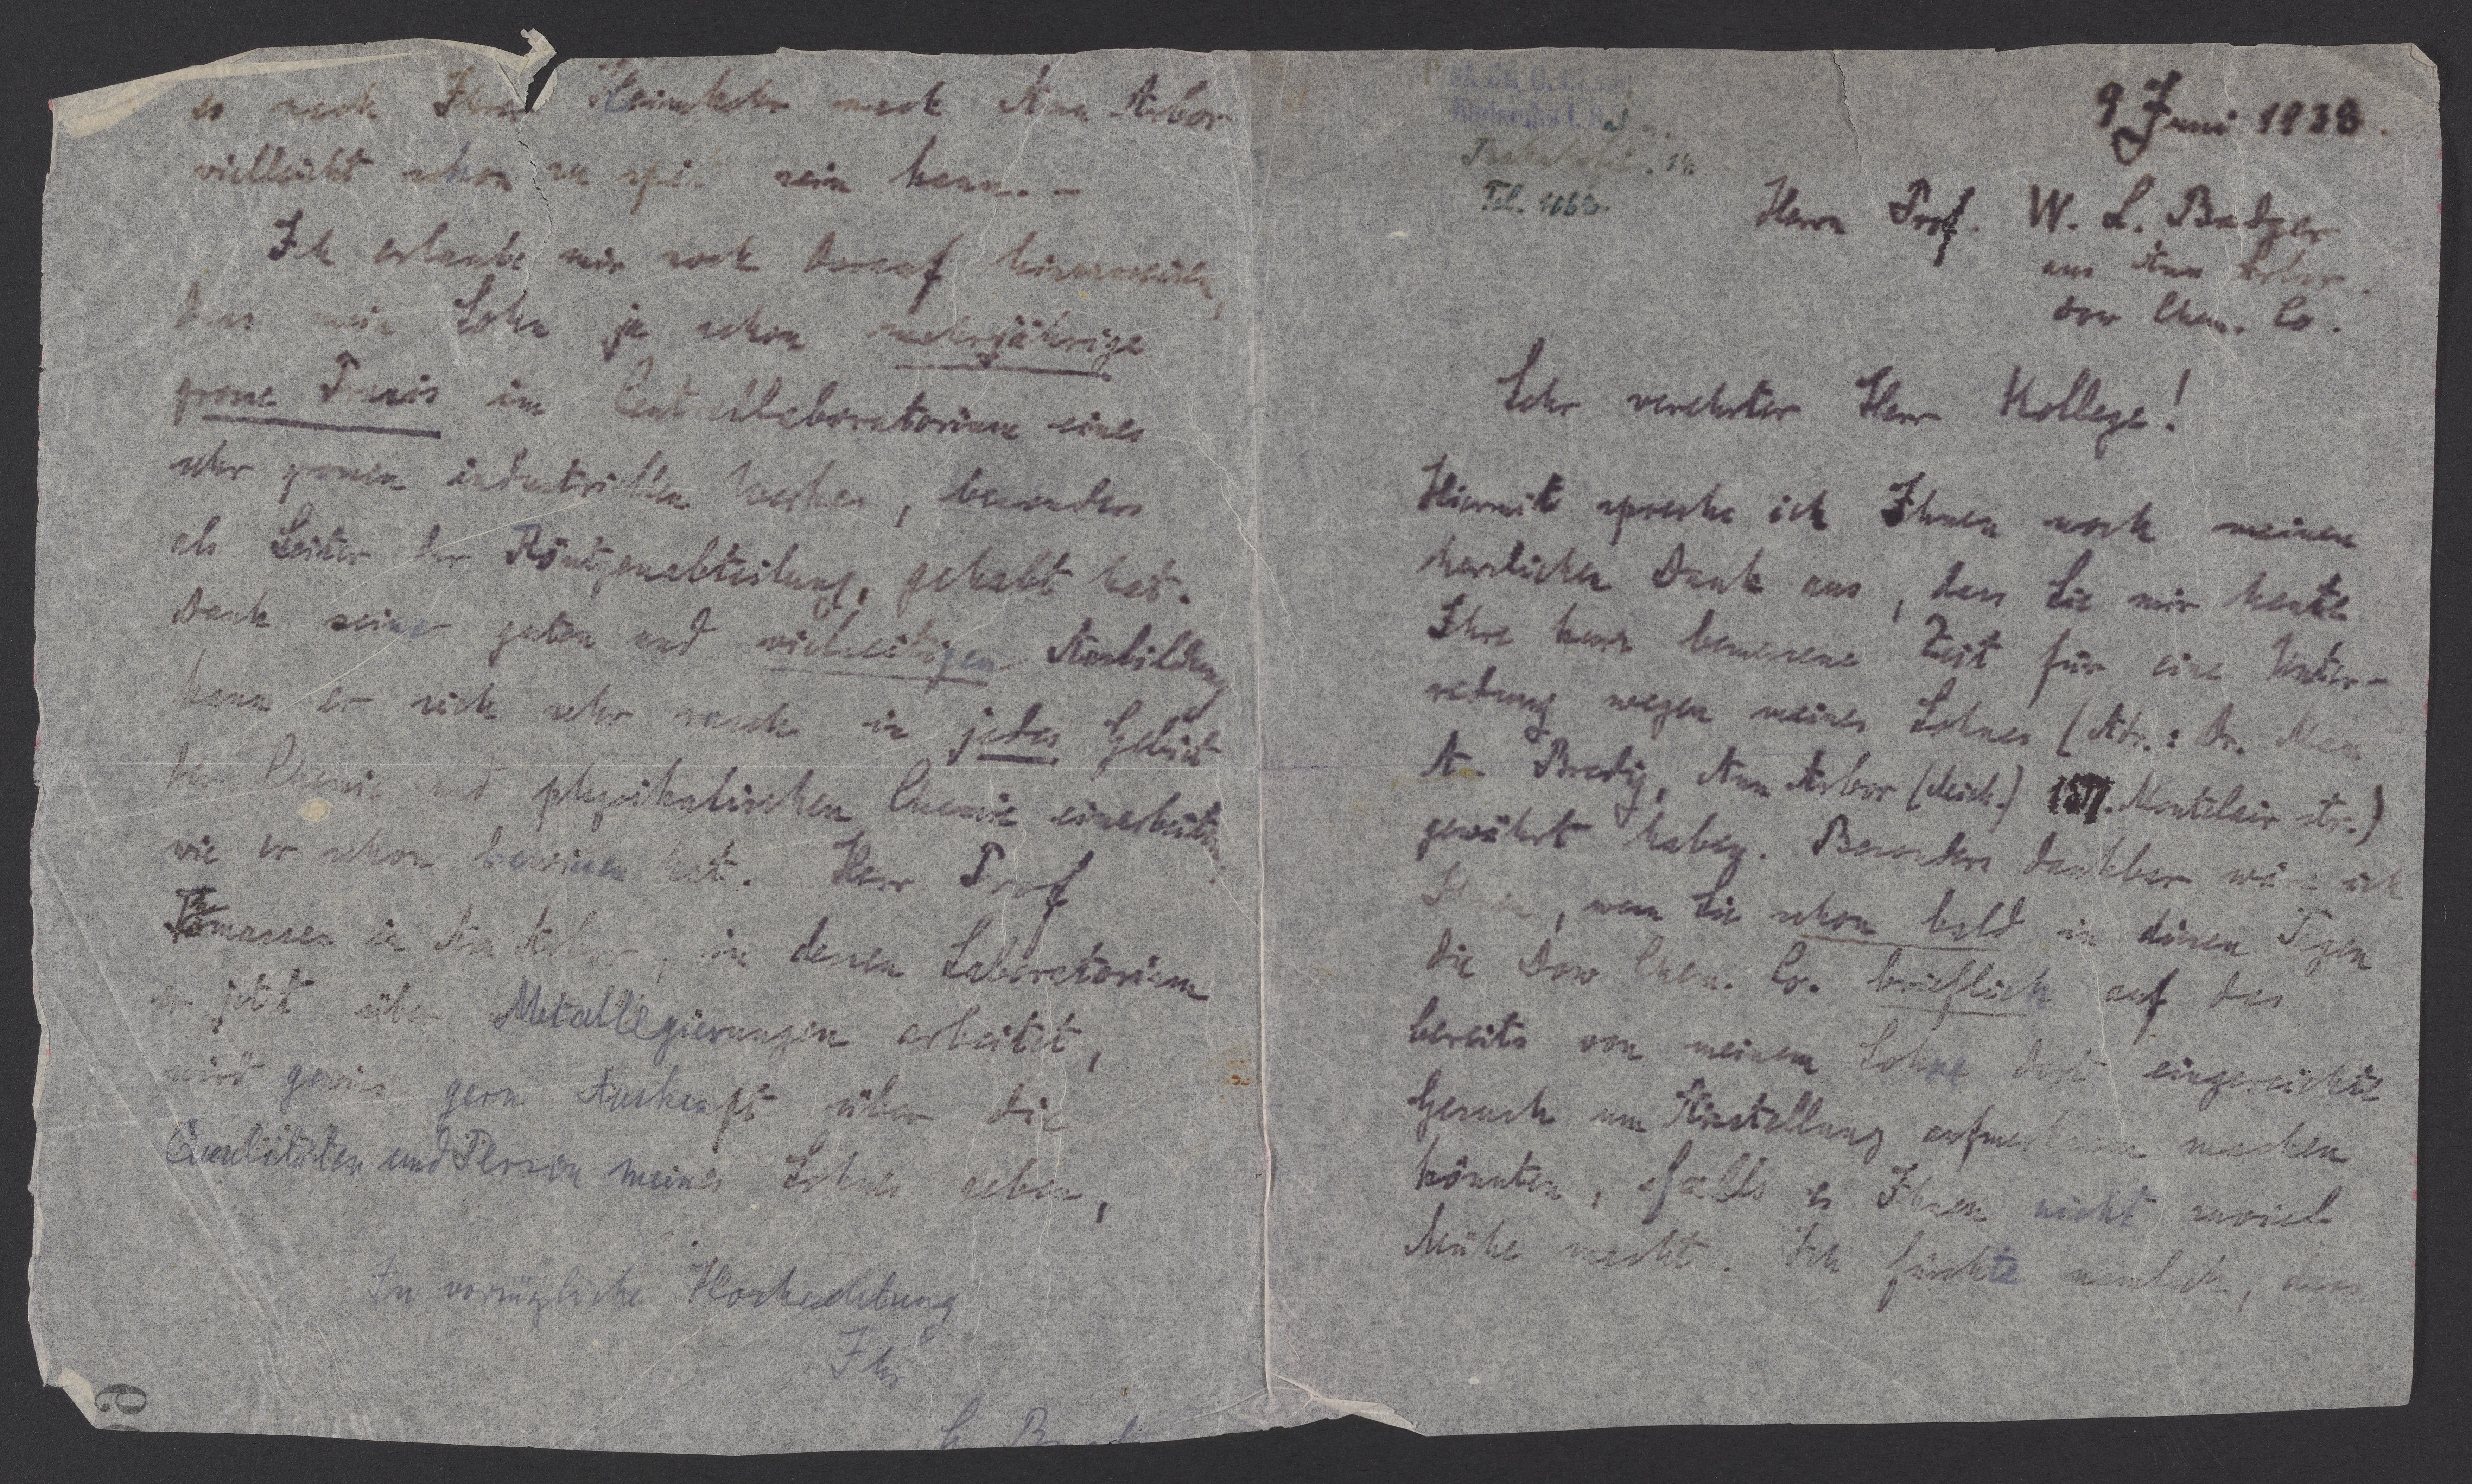 9 Juni 1938.
Tel. 1063.
Herrn Prof. W. L. Badger
aus Ann Arbor.
Dow Chem. Co.
Sehr verehrter Herr Kollege!
Hiermit spreche ich Ihnen noch meinen
herzlichen Dank aus, dass Sie mir heute
Ihre kurz bemessene Zeit für eine Unter-
redung wegen meines Sohnes (Adr.: Dr. Max
A. Bredig, Ann Arbor (Mich.) Montclair str.)
gewährt haben. Besonders dankbar wäre ich
Ihnen, wenn Sie schon bald in diesen Tagen
die Dow Chem. Co. brieflich auf das
bereits von meinem Sohne dort eingereichte
Gesuch um Anstellung aufmerksam machen
könnten, falls es Ihnen nicht zuviel
Mühe macht. Ich fürchte nämlich, dass
es nach Ihrer Heimkehr nach Ann Arbor
vielleicht schon zu spät sein kann. -
Ich erlaube mir noch darauf hinzuweisen,
dass mein Sohn ja schon mehrjährige
grosse Praxis im Centrallaboratorium eines
sehr grossen industriellen Werkes, besonders
als Leiter der Röntgenabteilung, gehabt hat.
Dank seiner guten und vielseitigen Ausbildung
kann er sich sehr rasch in jedes Gebiet
der Chemie und physikalischen Chemie einarbeiten,
wie er schon bewiesen hat. Herr Prof
Thomassen in Ann Arbor, in dessen Laboratorium
er jetzt über Metallegierungen arbeitet,
wird gewiss gern Auskunft über die
Qualitäten und Person meines Sohnes geben,
In vorzüglicher Hochachtung
Ihr
G. Bredig